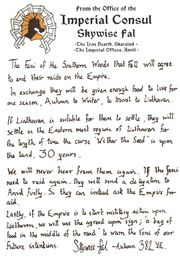 From the Office of the
Imperial Consul
Skywise Fal
~The Iron Hearth,
~The Imperial Offices, Anvil~
The Feni of the Southern Woods that Fall will agree
to end their raids on the Empire.
In exchange they will be given enough food to live for
one season, Autumn to Winter, to travel to Liathaven.
If Liathaven is suitable for them to settle, they will
settle in the Eastern most region of Liathaven for
the length of time the curse 'Wither the Seed' is upon
the land, 30 years.
We will never hear from them again, if the feni
need to raid again, they will send a delegation to
Anvil firstly. So they can instead ask the Empire for
aid.
Lastly, if the Empire is to start military action upon
Liathaven, we will use the agreed upon sign; 'a bag of
food in the middle of the road' to warn the feni of our
future intentions. Skywise Fal ~Autumn 382 YE.